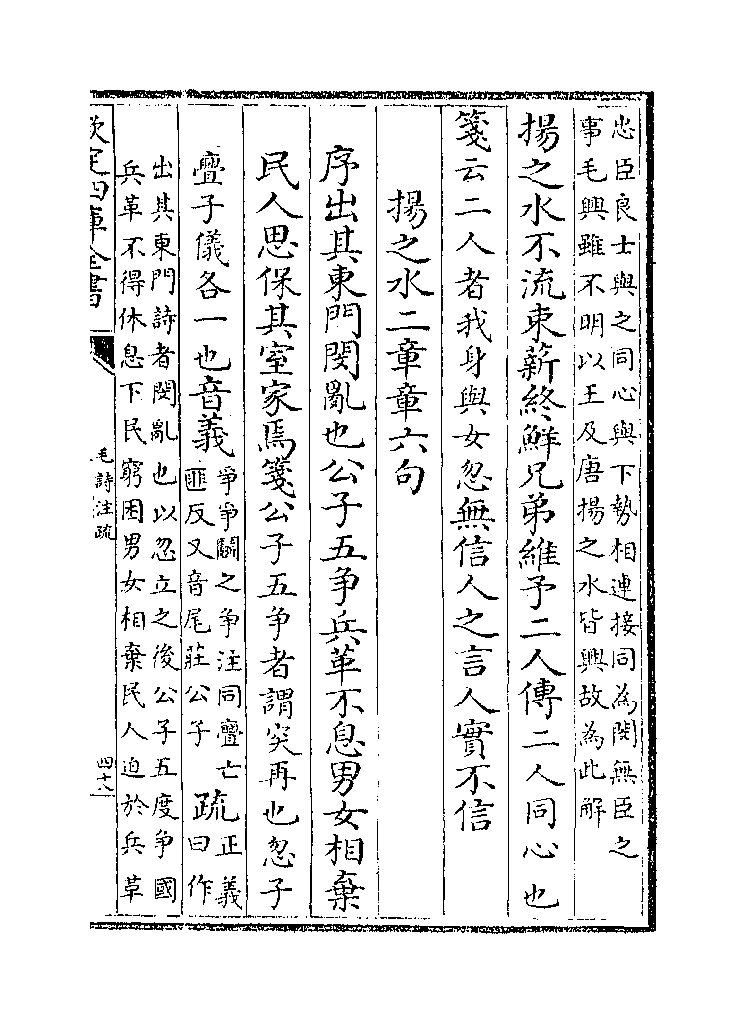 忠臣良士與之同心與下勢相連接同為閔無臣之
事毛興雖不明以王及唐揚之水皆興故為此解
揚之水不流束薪終鮮兄弟維予二人傳二人同心也
箋云二人者我身與女忽無信人之言人實不信
揚之水二章章六句
序出其東門閔亂也公子五争兵革不息男女相棄
民人思保其室家焉箋公子五争者謂突再也忽子
亹子儀各一也音義
爭爭鬭之争注同亹亡
匪反又音尾莊公子
疏
正義
曰作
出其東門詩者閔亂也以忽立之後公子五度争國
兵革不得休息下民窮困男女相棄民人迫於兵革
欽定四庫全書
毛詩注疏
四十八